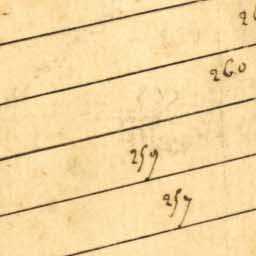 260
259
257